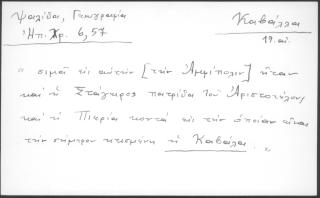 Ψαλίδα, Γεωγραφία
Ἠπ. Χρ. 6, 57
Καβάλλα
19. αἰ.
" σιμαὶ εἰς αὐτὴν [τὴν Ἀμφίπολιν] ἦταν
καὶ ἡ Στάγειρος πατρίδα τοῦ Ἀριστοτέλους
καὶ ἡ Πιερία κοντὰ εἰς τὴν ὁποίαν εἶναι
τὴν σήμερον κτισμένη ἡ Καβάλα. "